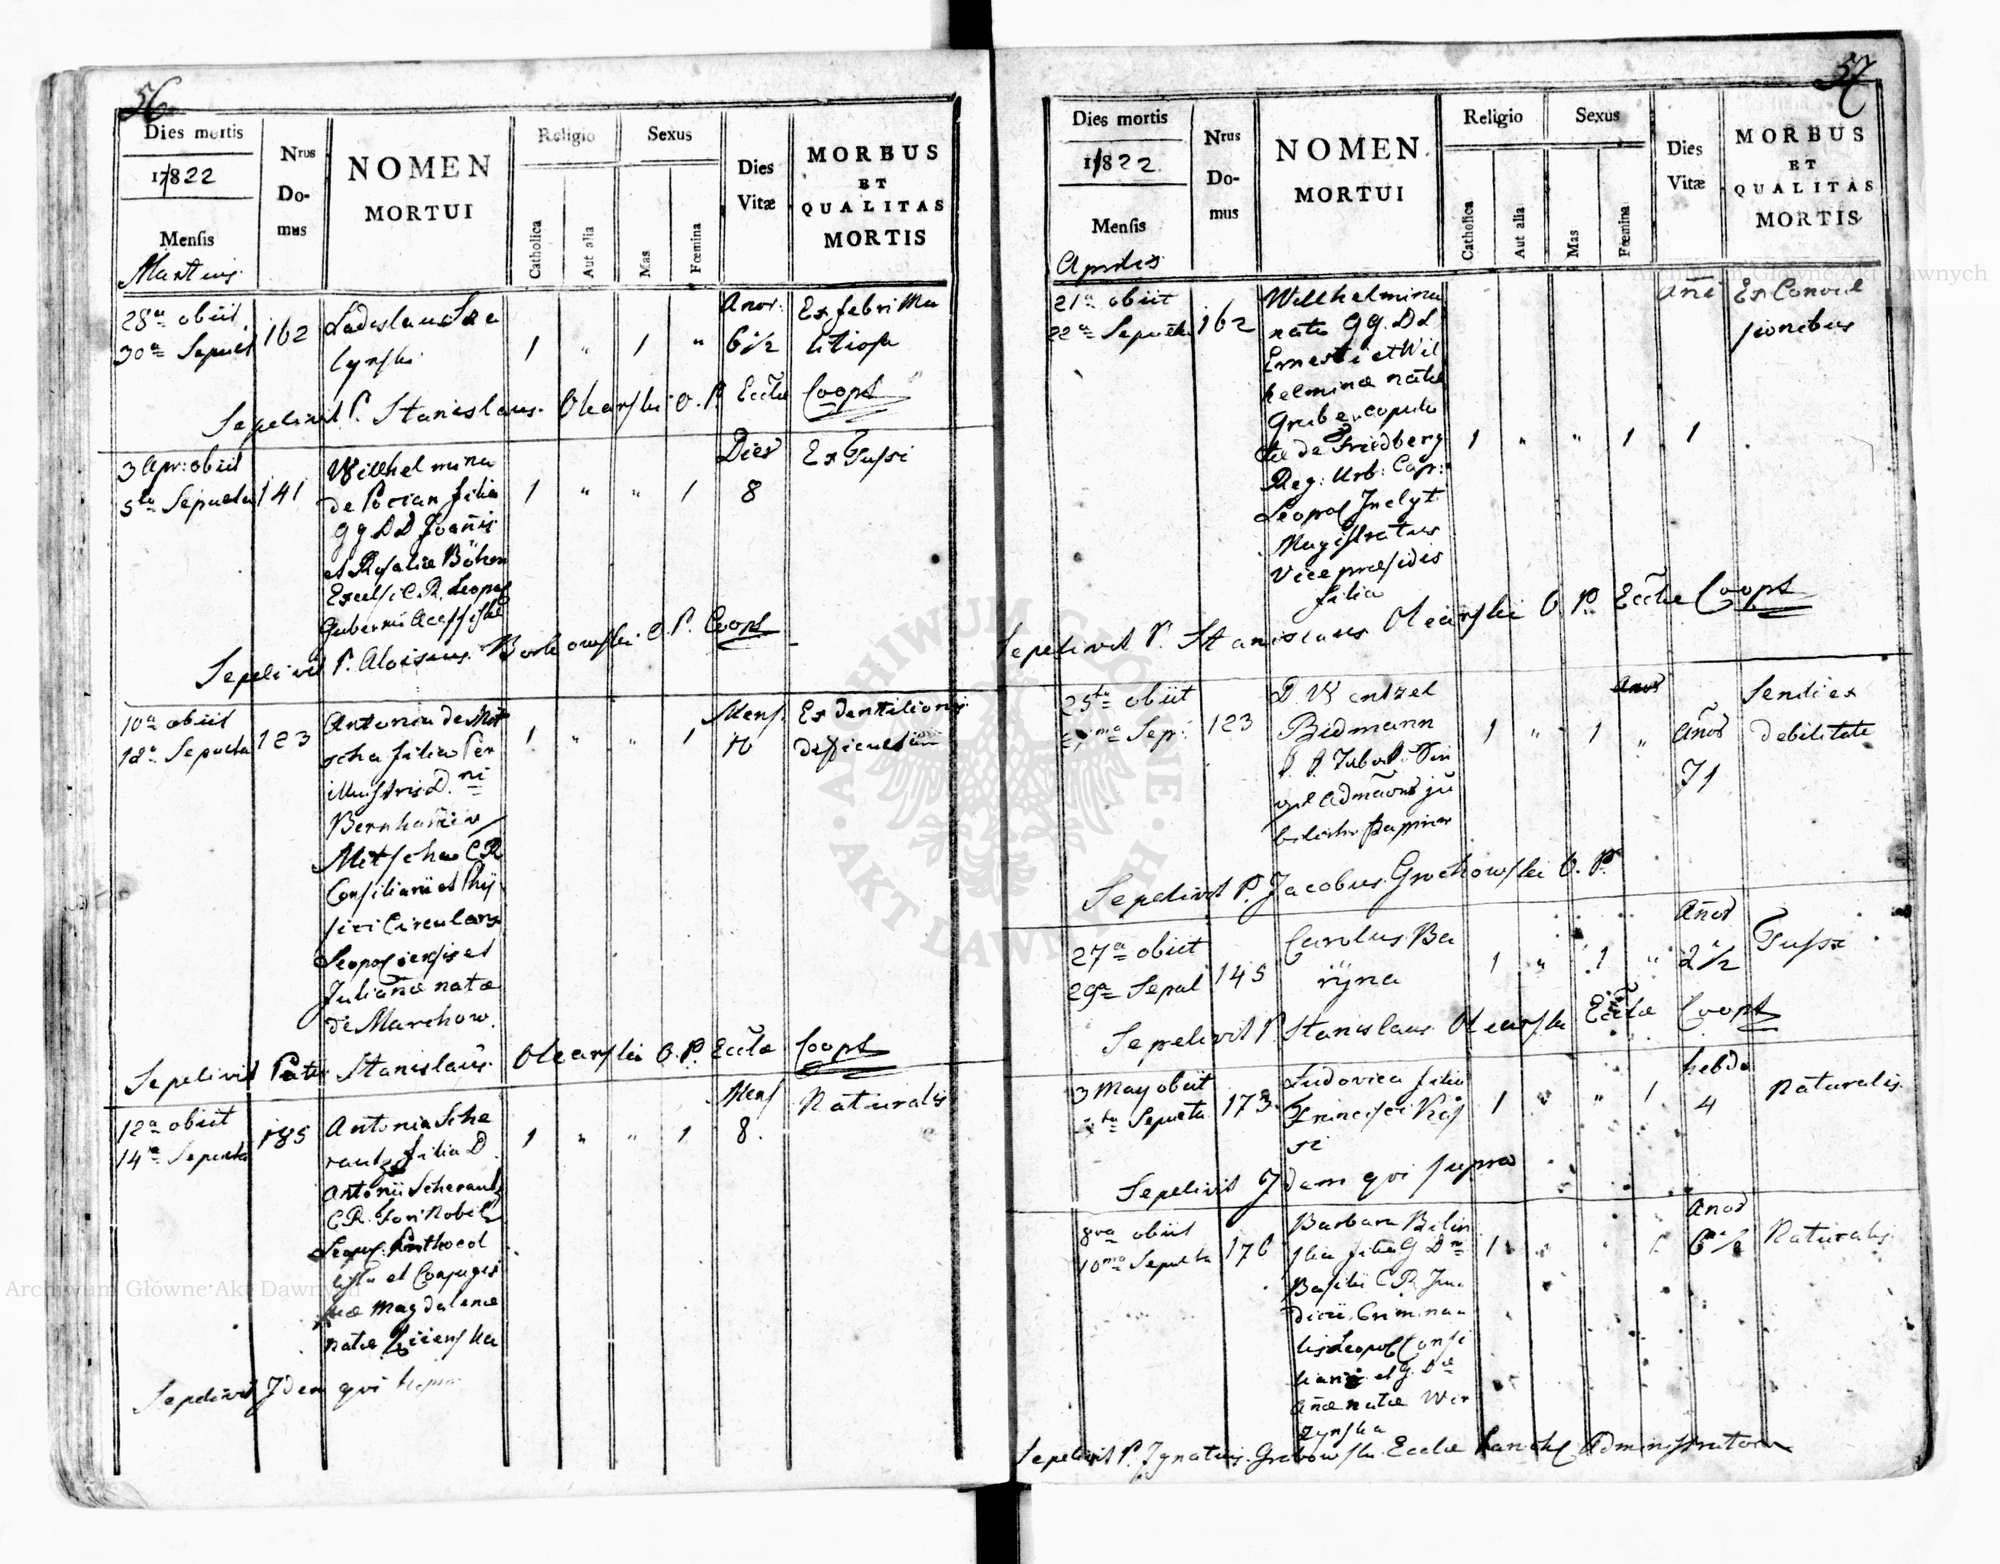 56
Dies mortis
17822
Mensis
Martius
Nrus
Do-
mus
NOMEN
MORTUI
Religio
Catholica
Aut alia
Sexus
Mas
Fœmina
Dies
Vitæ
MORBUS
ET
QUALITAS
MORTIS
28a obiit
30a Sepult
162
Ladislaus Sze
lynski
1 " 1 "
Anor:
6 1/2
Ex febri Ma
litiosa
Sepelivit P. Stanislaus Olearski O.P. Eccłae Coopt
3 Apr: obiit
5ta Sepulta
141
Wilhelmina
de Pocian filia
GG DD Joanis
et Rosaliæ Böhm
Excelsi C.R. Leopol
Gubernii
1 " " 1
Dies
8
Ex Tussi
Sepelivit P. Aloisius Borkowski O.P. Coopt
10a obiit
12a Sepulta
123
Antonia de Met
scha filia Per
illustris D.ni
Bernhardi
Metscha C.R.
Consiliarii et Phÿ
sici Circularis
Leopoliensis et
Julianæ natæ
de Marchow.
1 " " 1
Mens.
10
Ex dentitionis
difficultate
Sepelivit Pater Stanislaus Olearski O.P. Eccłæ Coopt
12a obiit
14a Sepulta
185
Antonia Sche
rautz filia D.
Antonii Scherautz
C.R. Fori Nobil
Leopol: Prothocol
lista et Conjugis
suæ Magdalenæ
natæ
1 " " 1
Mens
8.
Naturalis
Sepelivit Idem qui supra
57
Dies mortis
1822.
Mensis
Aprilis
Nrus
Do-
mus
NOMEN
MORTUI
Religio
Catholica
Aut alia
Sexus
Mas
Fœmina
Dies
Vitæ
MORBUS
ET
QUALITAS
MORTIS
21a obiit
22a Sepulta
162
Willhelmina
nata GG. DD.
Ernesti et Wil
helminæ natæ
Gruber copula
tæ de Friedberg
Reg: Urb: Cap:
Leopol Inclyt
Magistratus
Vice præsidis
filia
1 " " 1
Ani
1
Ex Convul
sionibus
Sepelivit P. Stanislaus Olearski O.P. Eccłae Coopt
25ta obiit
Sep:
123
D. Wentzel
Bidmann
1 " 1 "
Anor
71
Senili ex
debilitate
Sepelivit P. Jacobus Grochowski O.P.
27a obiit
29a Sepul
145
Carolus Ba
rÿna
1 " 1 "
Anor
2 1/2
Tussi
Sepelivit P. Stanislaus Olearski Eccłæ Coopt
3 May obiit
Sepulta
173.
Ludovica filia
Francisci
1 " " 1
hebdo
4
Naturalis
Sepelivit Idem qui supra
8va obiit
10ma Sepulta
176
Barbara Bilin
ska filia G. Dni
Basilii C.R. Ju
dicii Crimina
lis Leopol Consi
liarii et G. Dæ
Annæ natæ Wer
zynska
1 " " 1
Anor
6 1/2
Naturalis
Sepelivit P. Ignatius Grabowski Eccłæ Administrator
ARCHIWUM GŁÓWNE AKT DAWNYCH
Archiwum Główne Akt Dawnych
Archiwum Główne Akt Dawnych